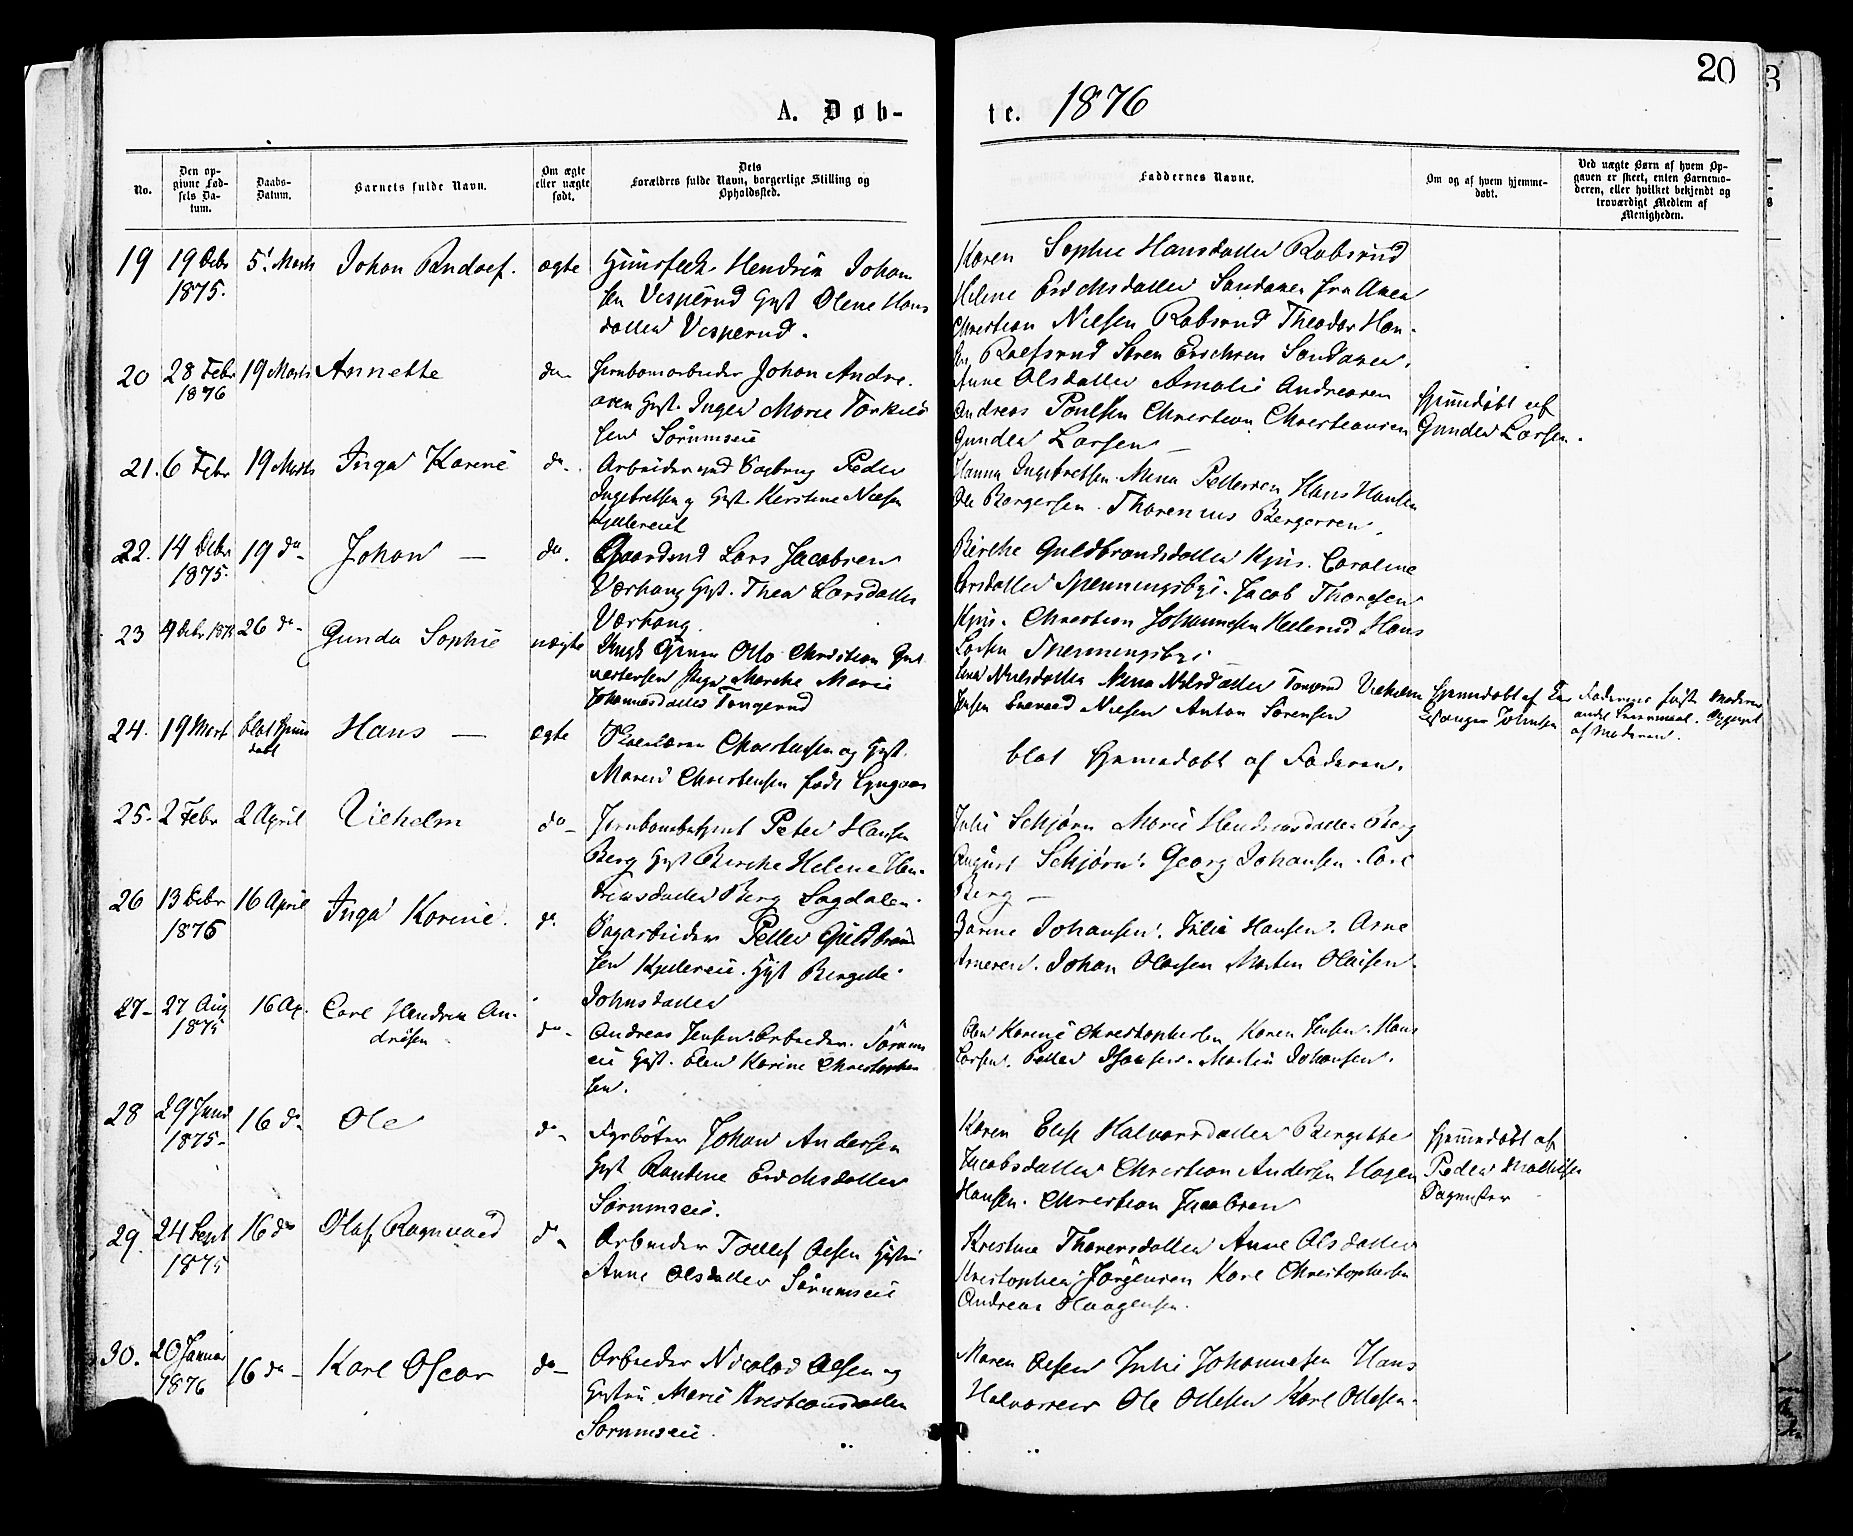 20
A. Døb-
te. 1876
No.
Den op-
givne Fød-
sels Da-
tum.
Daabs-
Datum.
Barnets fulde Navn.
Om ægte
eller uægte
født.
Dets
Forældres fulde Navn, borgerlige Stilling og
Opholdssted.
Faddernes Navne.
Om og af hvem hjemme-
døbt.
Ved uægte Børn af hvem Op-
gaven er skeet, enten Barnemo-
deren, eller hvilket bekjendt og
troværdigt Medlem af
Menigheden.
19 19 Debr 1875. 5' Marts Johan Rudolf. ægte
Huusfech. Hendrik Johan
sen Vesperud Gust Olene Hans
datter Vesperud.
Karen Sophie Hansdatter Robsrud
Helene Erichsdatter Sandaker
Christian Nielsen Robsrud Theodor Han-
sen Roelfsrud Søren Erichsen Sandaker.
20 28 Febr 1876 19 Marts Annette do-
Jernbanarbeider Johan Andre-
asen Gust. Inger Marie Torkils
sen Sørumseie
Anne Olsdatter Amalie Andreasen
Andreas Poulsen Christian Christiansen
Gunder Larsen —
Hjemmdøbt af
Gunder Larsen.
21. 6 Febr 19 Marts Inga Karine do-
Arbeider ved Sagbrug Peder
Ingebretsen og Gust. Kerstine Nielsen
Kjellereiet
Hanna Ingebretsen. Mina Pettersen Hans Hansen
Ole Borgersen. Thorenius Bergersen.
22. 14 Debr 1875. 19 do- Johan — do.
Gaardmd Lars Jacobsen
Værhaug Gust. Thea Larsdatter
Værhaug.
Birthe Guldbrandsdatter Kjus. Caroline
Larsdatter Spenningsbyé. Jacob Thoresen
Kjus. Christian Johannesen Hellerud Hans
Larsen Thenningsbyé
23 9 Debr 1875 26 do- Gunda Sophie uægte
Ungk Otto Christian
Pige Marthe Marie
Johannesdatter Tangerud
Nielsdatter Nina Nielsdatter Tangerud Vilhelm
Jensen Edevard Nielsen Anton Sørensen
Hjemmdøbt af
Johnsen
Faderens første Moderens
andet Leiermaal. Opgivet
af Moderen.
24. 19 Mart blot hjem døbt Hans — ægte
Christensen og Gust.
Maren Christensen født Lyngaas
blot hjemedøbt af Faderen.
25. 2 Febr 2 April Vilhelm do-
Jernbanebetjent Peter Hansen
Berg Gust Birthe Helene Hen-
driksdatter Berg Sagdalen.
Julie Schjørn Marie Hendriksdatter Berg
August Schjørn. Georg Johansen. Carl
Berg —
26 13 Debr 1875 16 April Inga Karine. do.
Sagarbeider Petter Guldbrand
sen Kjellereie. Gust Bergitte
Johnsdatter
Johansen. Julie Hansen. Arne
Arnesen. Johan Olausen Morten Olausen.
27- 27 Aug 1875 16 Ap. Carl Hendrik An-
dresen do-
Andreas Jensen. Arbeider. Sørum
eie Gust. Elen Karine Christopher
sen.
Elen Karine Christophersen Karen Jensen. Hans
Larsen. Petter Hansen. Martin Johansen.
28 29 Juni 1875- 16 do- Ole do-
Fyrbøter Johan Andersen
Gust Randine Erichsdatter
Sørumseie.
Karen Elise Halvorsdatter Bergitte
Jacobsdatter Christian Andersen Hagen
Hansen. Christian Jacobsen
Hjemmedøbt af
Peder Mathisen
Sagmester
29. 24 Sept 1875 16 do Olaf Ragnvald do-
Arbeider Tollef Olsen Hustru
Anne Olsdatter Sørumseie
Kristine Thoresdatter Anne Olsdatter
Kristopher Jørgensen Karl Christophersen
Andreas Haagensen.
30. 20 Januar 1876 16 do- Karl Oscar do-
Arbeider Nicolai Olsen og
Hustru Marie Kristiansdatter
Sørumseie.
Maren Olsen Julie Johannesen Hans
Halvorsen Ole Olesen Karl Olesen.